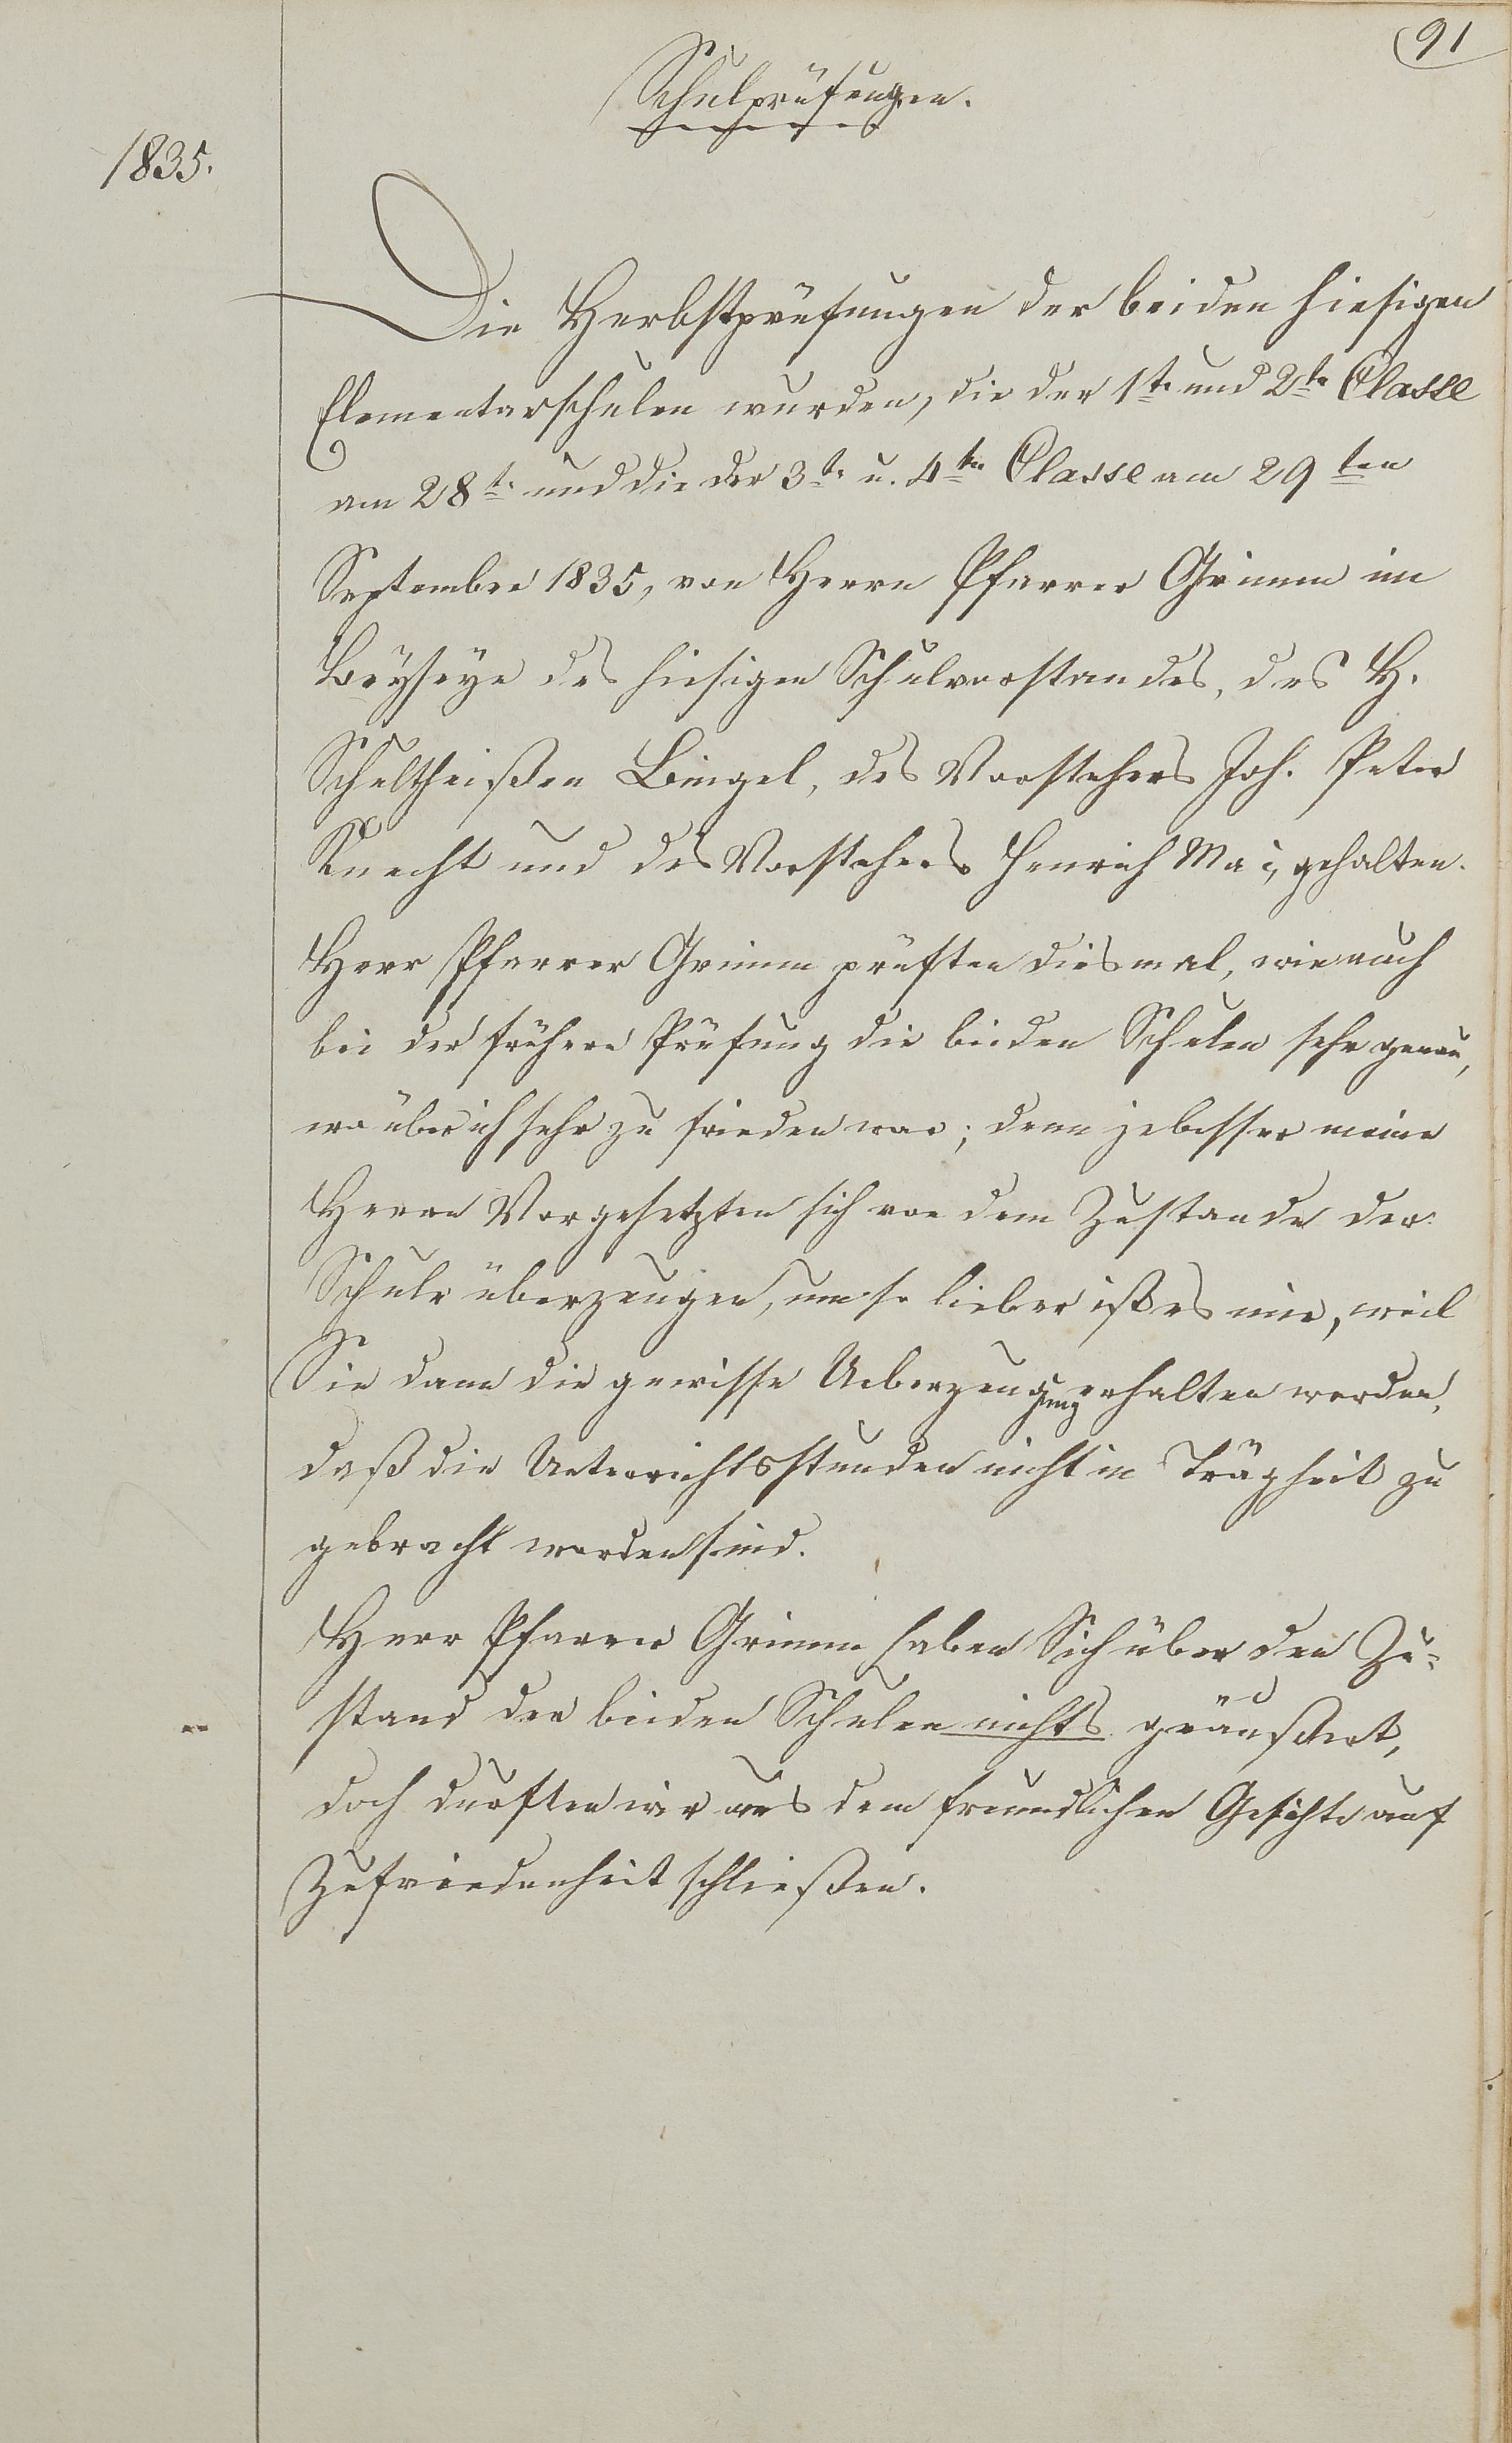 91
Schulprüfungen.
1835.
Die Herbstprüfungen der beiden hiesigen
Elementarschulen wurden, die der 1te und 2te Classe
am 28te und die der 3te u. 4ten Classe am 29ten
September 1835, von Herrn Pfarrer Grimm im
Beyseye des hiesigen Schulvorstandes, des H.
Schultheißen Bingel, des Vorstehers Joh. Peter
Knecht und des Vorstehers Henrich Mai, gehalten.
Herr Pfarrer Grimm prüften diesmal, wie auch
bei der frühern Prüfung die beiden Schulen sehr genau,
wo über ich sehr zu frieden war; denn je besser meine
Herrn Vorgesetzten sich von dem Zustande der
Schule überzeugen, um so lieber ist es mir, weil
Sie dann die gewisse Ueberzeugung erhalten werden,
daß die Unterrichtsstunden nicht in Trägheit zu
gebracht worden sind.
Herr Pfarrer Grimm haben Sich über den Zu-
stand der beiden Schulen nichts geäußert,
doch durften wir aus dem freundlichen Gesichte auf
Zufriedenheit schließen.